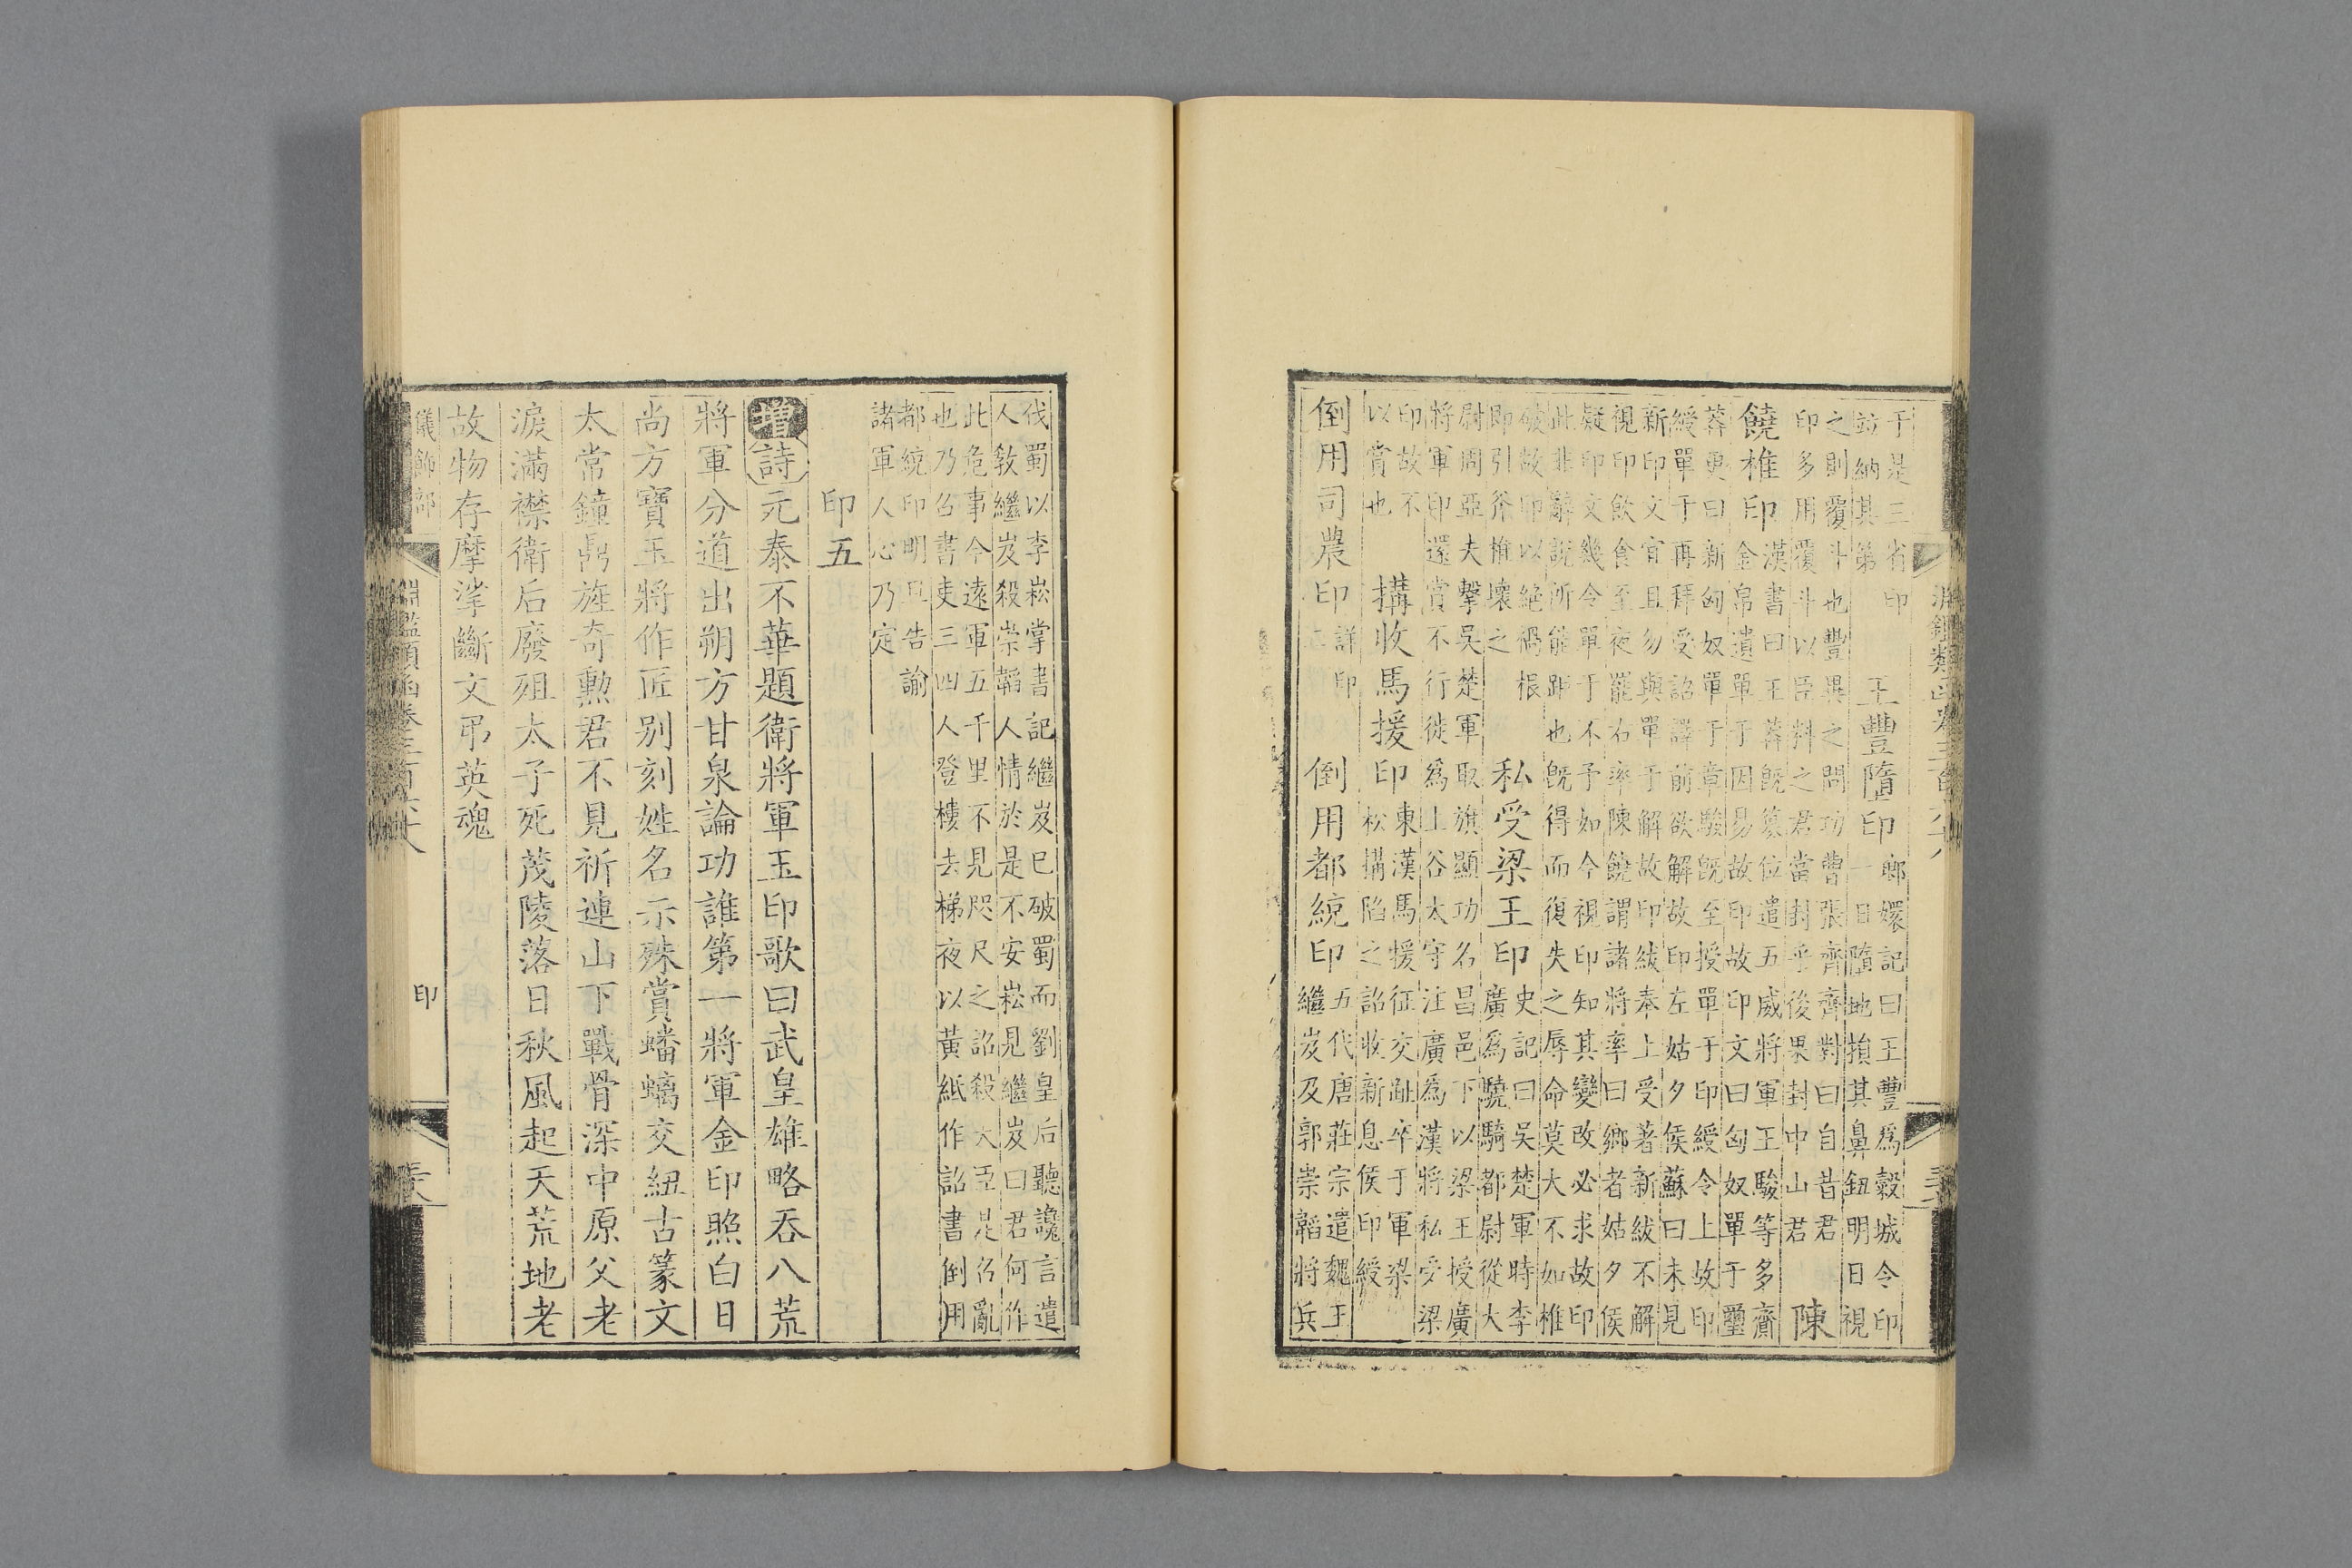 于是三省印
竝納其第
王豐隳印
瑯嬛記曰王豐爲穀城令印
一日隳地損其鼻鈕明日視
之則覆斗也豐異之問功曹張齊齊對曰自昔君
印多用覆斗以臣料之君當封乎後果封中山君
陳
饒椎印
漢書曰王莽旣篡位遣五威將軍王駿等多齎
金帛遺單于因易故印故印文曰匈奴單于璽
莽更曰新匈奴單于章駿旣至授單于印綬令上故印
綬單于再拜受詔譯前欲解故印左姑夕侯蘇曰未見
新印文宜且勿與單于解故印紱奉上受著新紱不解
視印飲食至夜罷右率陳饒謂諸將率曰鄉者姑夕侯
疑印文幾令單于不予如今視印知其變改必求故印
此非辭說所能距也旣得而復失之辱命莫大不如椎
破故印以絶禍根
卽引斧椎壞之
私受梁王印
史記曰吳楚軍時李
廣爲驍騎都尉從大
尉周亞夫擊吳楚軍取旗顯功名昌邑下以梁王授廣
將軍印還賞不行徙爲上谷太守注廣爲漢將私受梁
印故不
以賞也
搆收馬援印
東漢馬援征交趾卒于軍梁
松搆陷之詔收新息侯印綬
倒用司農印
詳印
二
倒用都統印
五代唐莊宗遣魏王
繼岌及郭崇韜將兵
伐蜀以李崧掌書記繼岌已破蜀而劉皇后聽讒言遣
人敎繼岌殺崇韜人情於是不安崧見繼岌曰君何作
此危事今遠軍五千里不見咫尺之詔殺大臣是召亂
也乃召書吏三四人登樓去梯夜以黃紙作詔書倒用
都統印明旦告諭
諸軍人心乃定
印五
增詩元泰不華題衛將軍玉印歌曰武皇雄略吞八荒
將軍分道出朔方甘泉論功誰第一將軍金印照白日
尚方寶玉將作匠別刻姓名示殊賞蟠螭交紐古篆文
太常鐘鼎旌奇勲君不見祈連山下戰骨深中原父老
淚滿襟衛后廢殂太子死茂陵落日秋風起天荒地老
故物存摩挲斷文弔英魂
儀飾部
印